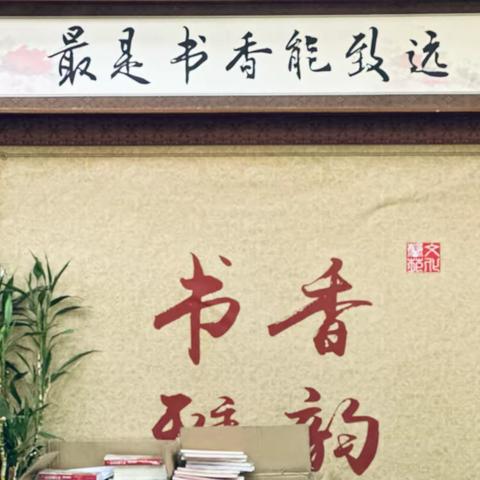 最是书香能致远
文化
书香
雅韵